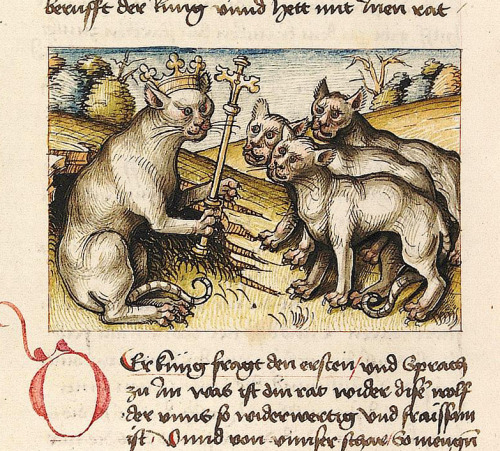 berufft der küng vnnd hett mit Inen rat
DEr küng fragt den ersten / vnd Sprach
zu Im was ist din rat wider dise wolf
der vnns so widerwertig vnd fraissam
ist / Vnnd von vnnser schar / So mengen